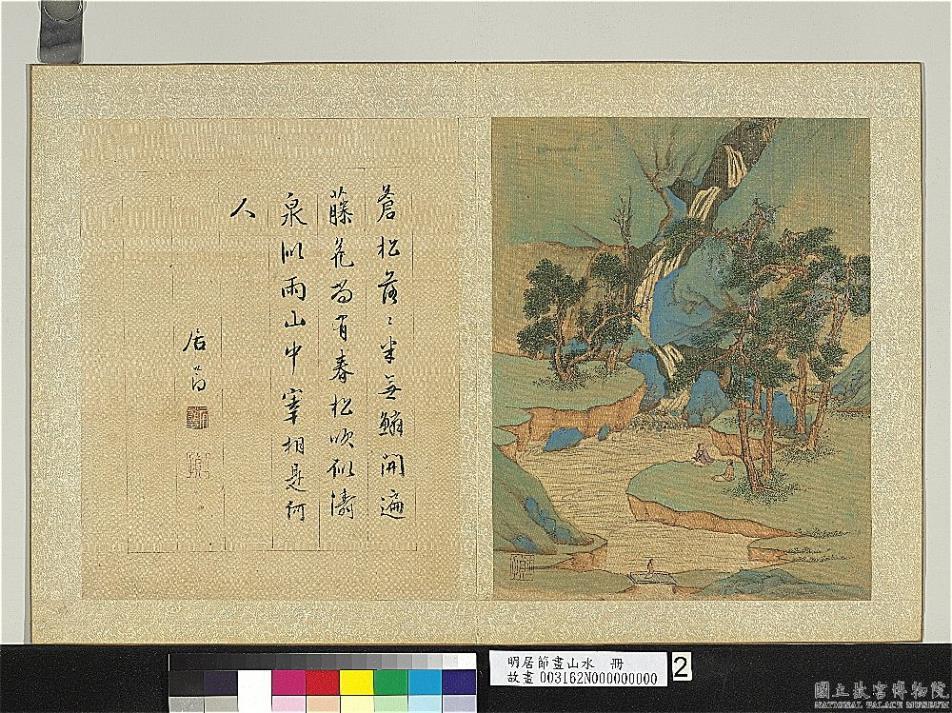 蒼松落々半無鱗開遍
藤花尚有春松吹似濤
泉似雨山中宰相是何
人
居節
明居節畫山水　冊
故畫003162N000000000
2
國立故宮博物院
NATIONAL PALACE MUSEUM